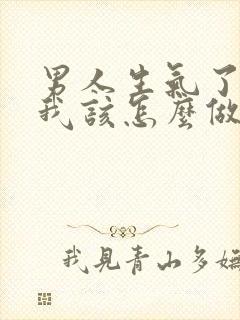 男人生氣了
我該怎麼做
我見青山多嫵